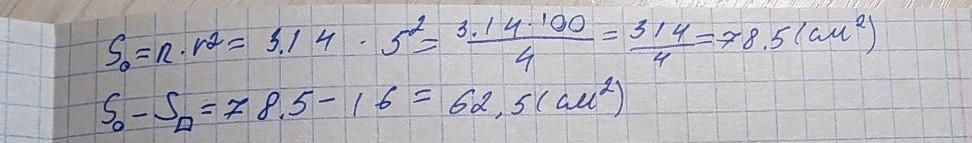 S₀ = п · r² = 3.14 · 5² = 3.14·100/4 = 314/4 = 78.5 (см²)
S₀ - S□ = 78.5 - 16 = 62,5 (см²)